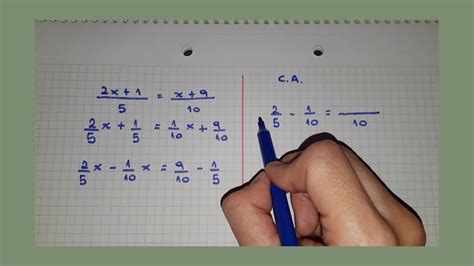 (2x + 1)/5 = (x + 9)/10
2/5 x + 1/5 = 1/10 x + 9/10
2/5 x - 1/10 x = 9/10 - 1/5
C.A.
2/5 - 1/10 = /10